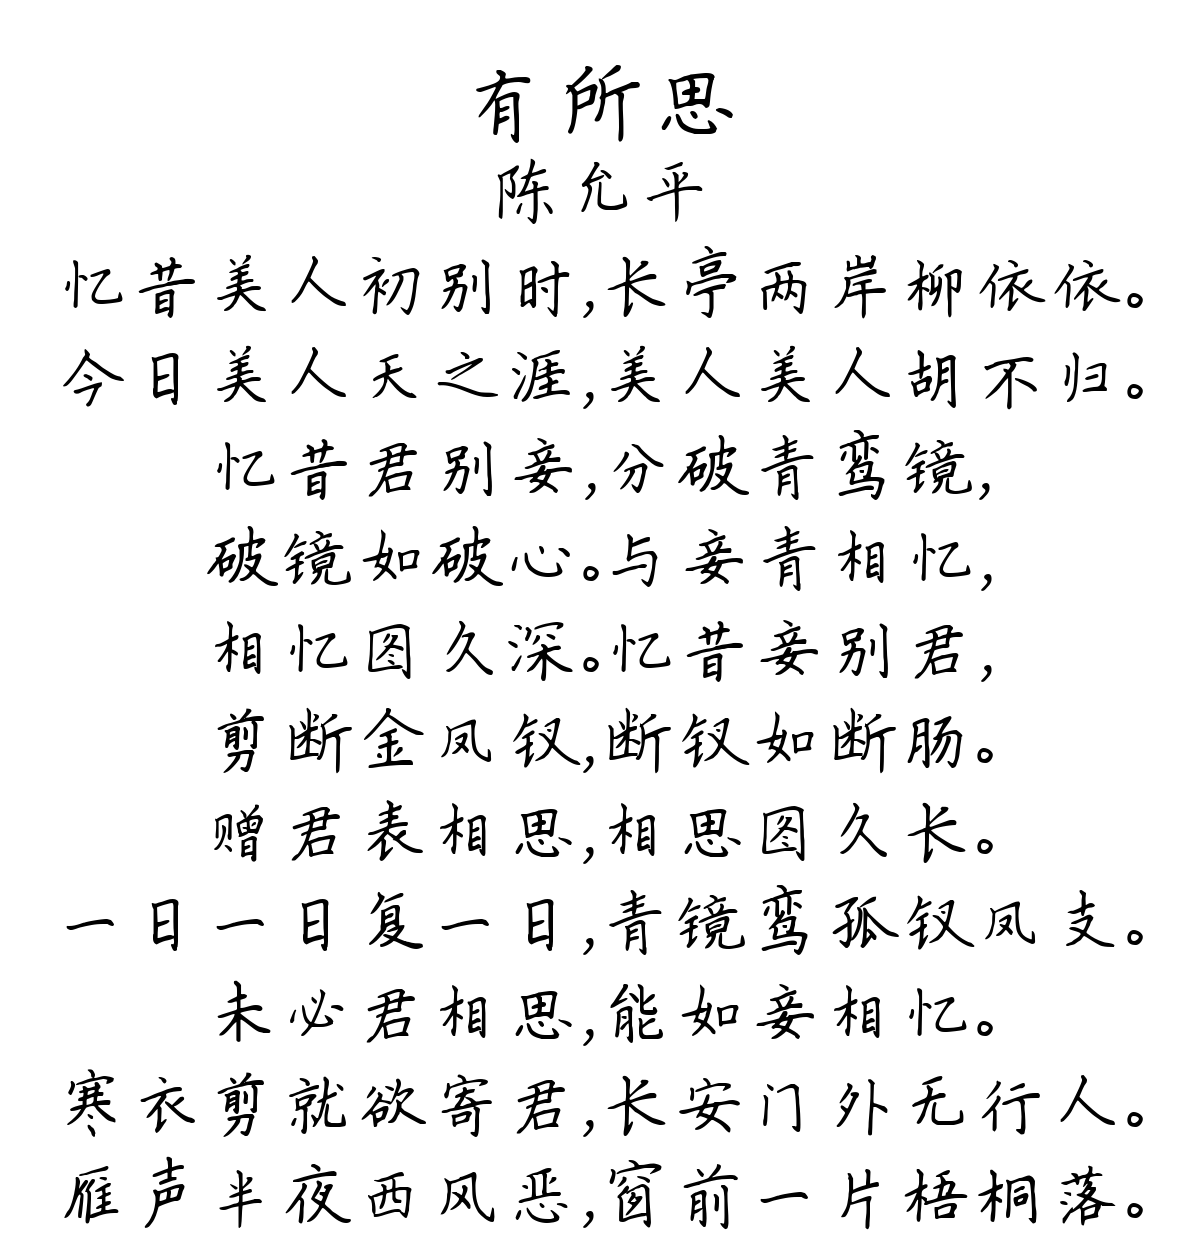 有所思
陈允平
忆昔美人初别时,长亭两岸柳依依。
今日美人天之涯,美人美人胡不归。
忆昔君别妾,分破青鸾镜,
破镜如破心。与妾青相忆,
相忆图久深。忆昔妾别君,
剪断金凤钗,断钗如断肠。
赠君表相思,相思图久长。
一日一日复一日,青镜鸾孤钗凤支。
未必君相思,能如妾相忆。
寒衣剪就欲寄君,长安门外无行人。
雁声半夜西风恶,窗前一片梧桐落。